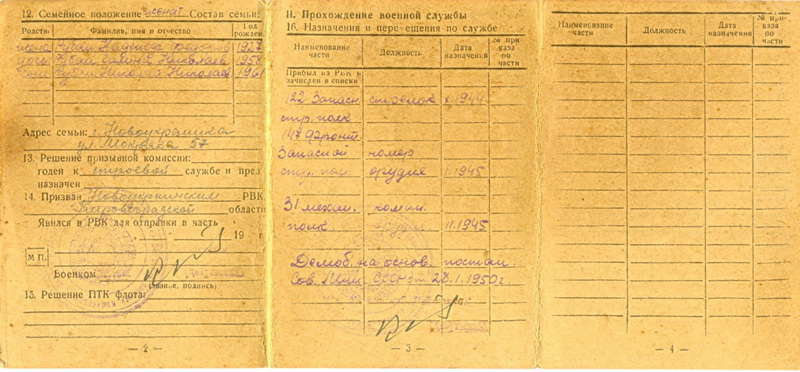 12. Семейное положение женат Состав семьи:
Родство Фамилия, имя и отчество Год рождения
жена Рубан 1927
дочь Рубан Галина Николаев 195
Рубан Николай Николаев 196
Адрес семьи: г. Новоукраинка
ул. 57
13. Решение призывной комиссии:
годен к строевой службе и пред
назначен
14. Призван Новоукраинским РВК
Кировоградской области
Явился в РВК для отправки в часть
19 г
М П.
Военком
(звание, подпись)
15. Решение ПТК флота
— 2 —
II. Прохождение военной службы
16. Назначения и перемещения по службе
Наименование части Должность Дата назначения № приказа по части
Прибыл из РВК и
зачислен в списки
122 Запасн. стрелок X.1944
стр. полк
147 фронт.
Запасной номер
стр. пол орудия I.1945
31 механ. коман.
полк орудия 11.1945
Демоб. на основ. постан.
Сов. Мин. СССР от 28.1.1950 г.
— 3 —
Наименование части Должность Дата назначения № приказа по части
— 4 —